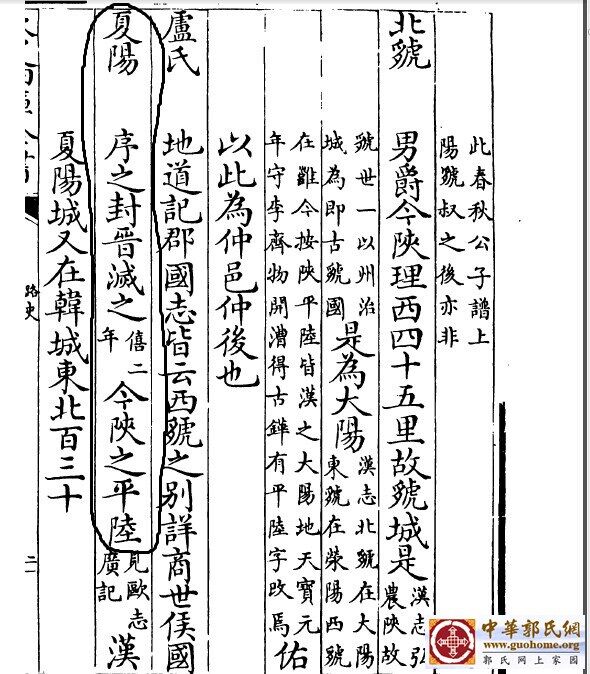 此春秋公子譜上
陽虢叔之後亦非
北虢 男爵今陝理西四十五里故虢城是漢志弘農陝故
虢世一以州治城為即古虢國是為大陽漢志北虢在大陽東虢在榮陽西虢
在雖今按陝平陸皆漢之大陽地天寶元年守李齊物開漕得古鏵有平陸字改焉佑
以此為仲邑仲後也
盧氏 地道記郡國志皆云西虢之別詳商世侯國
夏陽 序之封晉滅之僖二年今陝之平陸見歐志廣記漢
夏陽城又在韓城東北百三十
路史
二
中華郭氏網
www.guohome.org
郭氏網上家園